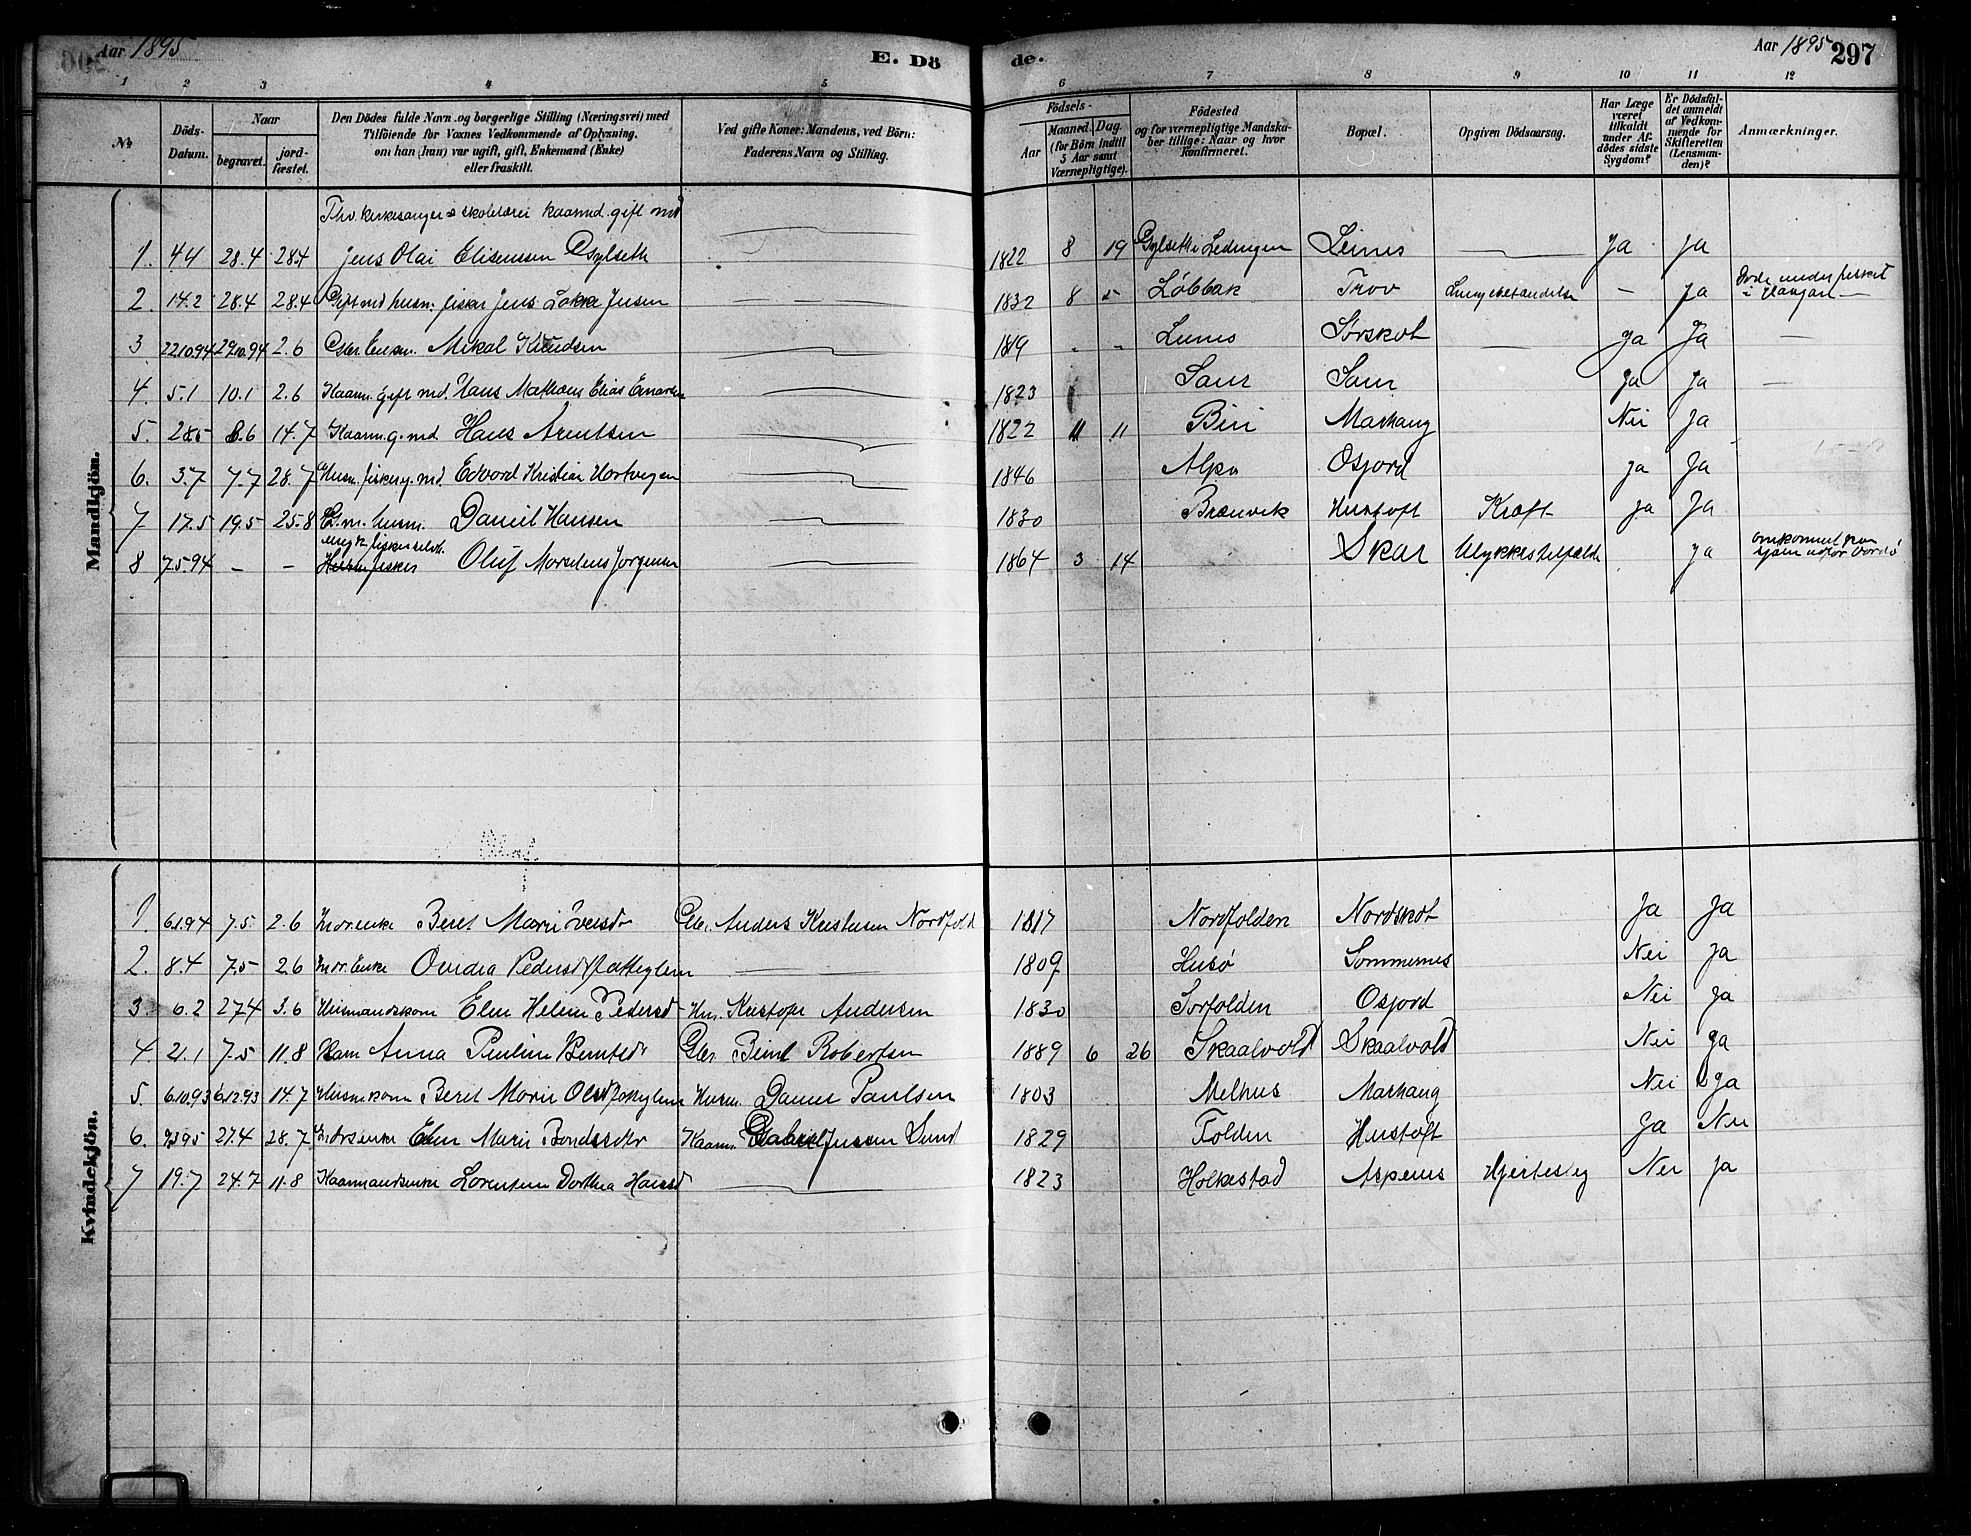 Aar 1895
E. Dö
de.
Aar 1895
297
1 2 3 4 5 6 7 8 9 10 11 12
№
Döds-Datum.
Naar
begravet.
jord-fæstet.
Den Dödes fulde Navn og borgerlige Stilling (Næringsvei) med
Tilföiende for Voxnes Vedkommende af Oplysning,
om han (hun) var ugift, gift, Enkemand (Enke)
eller fraskilt.
Ved gifte Koner: Mandens, ved Börn:
Faderens Navn og Stilling.
Födsels-
Aar
Maaned. Dag.
(for Börn indtil
5 Aar samt
Værnepligtige).
Födested
og for værnepligtige Mandska-
ber tillige: Naar og hvor
konfirmeret.
Bopæl.
Opgiven Dödsaarsag.
Har Læge
været
tilkaldt
under Af-
dödes sidste
Sygdom?
Er Dödsfal-
det anmeldt
af Vedkom-
mende for
Skifteretten
(Lensman-
den)?
Anmærkninger.
Mandkjön.
kirkesanger skolelærer kaarmd. gift md
1. 4.4 28.4 28.4 Jens Olai Elisenssen Gylseth 1822 8 19 Gylseth i Leines Ja Ja
2. 14.2 28.4 28.4 Gift md husm. fisker Jens Løkke Jensen 1832 8 5 Løbbak Trov Lungebetændelse - Ja Døde under fiskeri
3 22.10.94 29.10.94 2.6 Mikal Knudsen 1819 Sørskot Ja Ja
4. 5.1 10.1 2.6 Kaarm. gift md. Hans Mathæus Elias 1823 Ja Ja
5. 28.5 8.6 14.7 Kaarm. g. md Hans Arentsen 1822 11 11 Biri Marhaug Nei Ja
6. 3.7 7.7 28.7 Husm. fisker g. md. Edvard Kristian Hartvigsen 1846 Osfjord Ja Ja
7 17.5 19.5 25.8 G. m. husm. Daniel Hansen 1830 Brænvik Hustoft Kræft Ja Ja
8 7.5.94 - - fisker Oluf Jørgensen 1864 3 14 Skar Ulykkestilfælde Ja omkommet paa
sjøen udfor Vardø
Kvindekjön.
1. 6.1.94 7.5 2.6 Enke Beret Marie Gbr. Anders Kristensen Nordfold 1817 Nordfolden Nordskot Ja Ja
2. 8.4 7.5 2.6 Inderst Enke Ovidia Pedersd fattiglem 1809 Husø Sommernes Nei Ja
3 6.2 27.4 3.6 Husmandskone Elen Helene Pedersd Hm. Kristofer Andersen 1830 Sørfolden Osfjord Nei Ja
4. 21.1 7.5 11.8 Barn Anna Pauline Berntsdr Gbr. Bernt Robertsen 1889 6 26 Skaalvold Skaalvold Nei Ja
5. 6.10.93 6.12.93 14.7 Husm kone Beret Marie Olsd fattiglem Husm. Daniel Paulsen 1803 Melhus Marhaug Nei Ja
6. 9.3.95 27.4 28.7 Enke Elen Marie Kaarm. Gabriel Jensen Lund 1829 Folden Hustoft Ja Nei
7 19.7 24.7 11.8 Kaarmandsenke Lorentsen Dorthea Hansd 1823 Holkestad Aspenes Hjertesyg Nei Ja